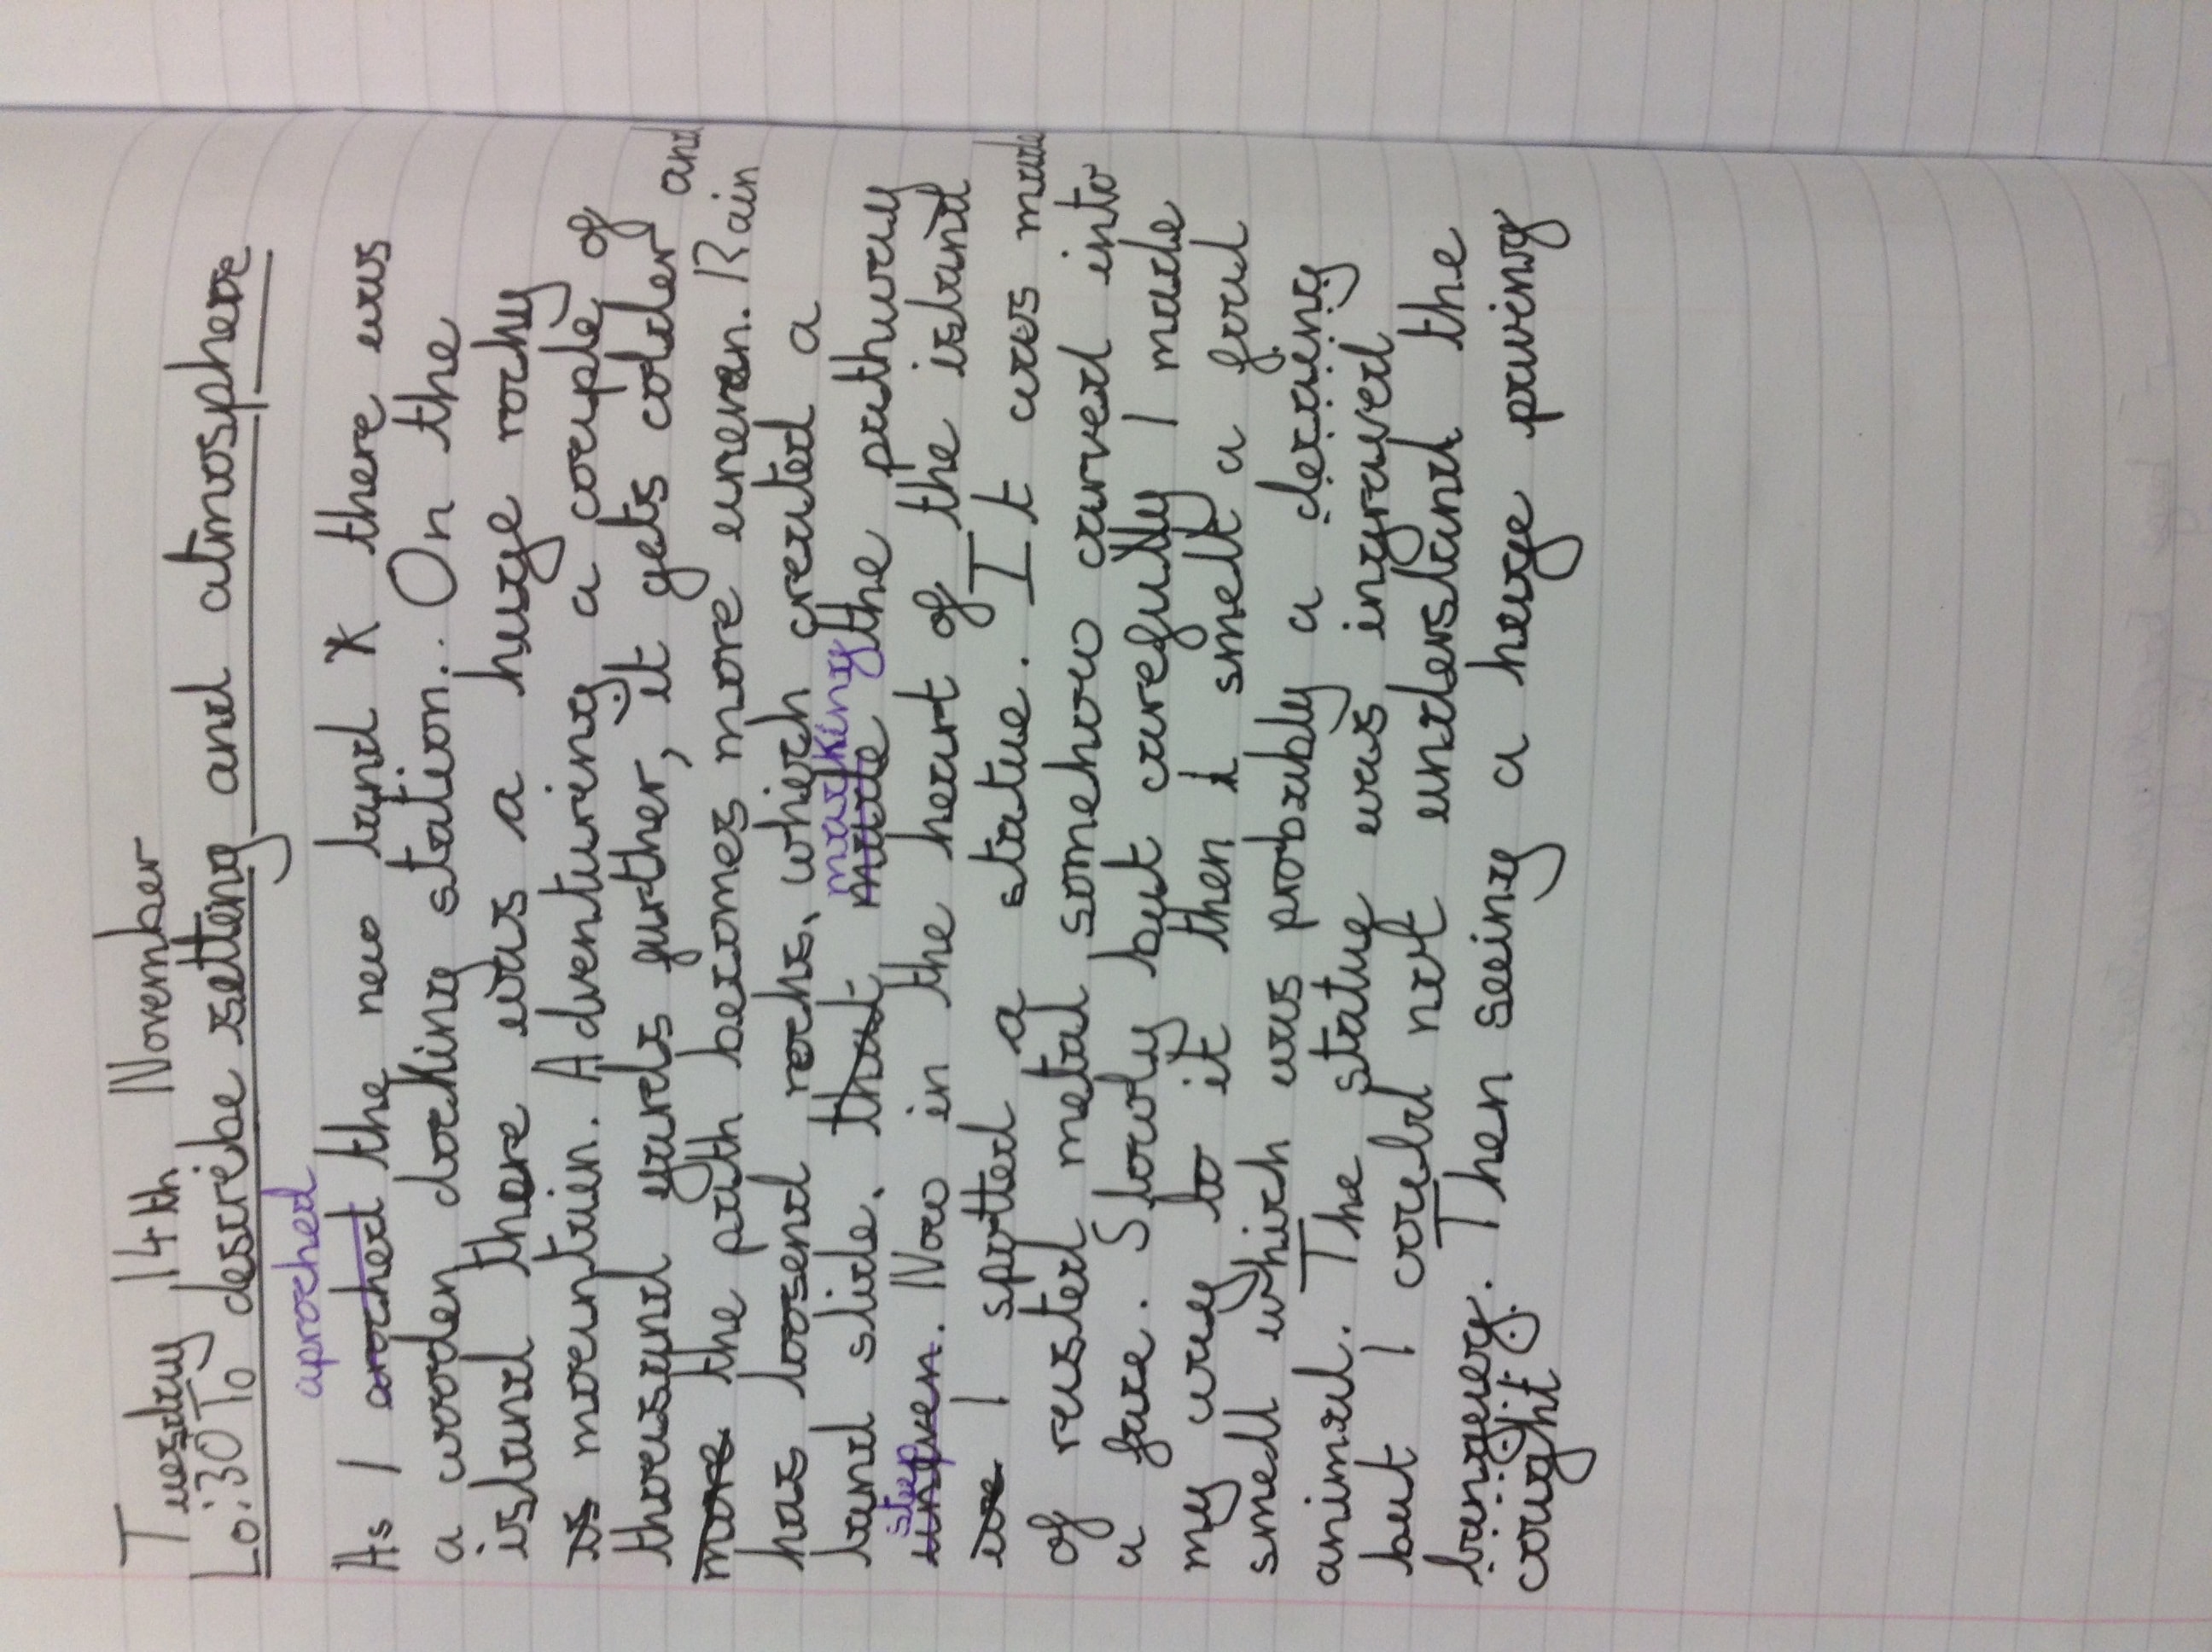 Tuesday 14th November
Lo:30 To describe setting and atmosphere
aproched
As I aroched the new land X there was
a wooden docking station.. On the
island there was a huge rocky
is mountain. Adventuring a couple of
thousand yards further, it gets colder and
more the path becomes more uneven. Rain
has loosend rocks, which created a
land slide. that made making the pathway
uneven steep. Now in the heart of the island
ive I spotted a statue. It was made
of rusted metal somehow carved into
a face. Slowly but carefully I made
my way to it then I smelt a foul
smell which was probably a decaing
animal. The statue was ingraved
but I could not understand the
languey. Then seeing a huge paving
cought